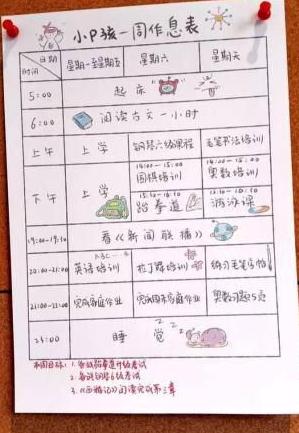 小P孩一周作息表
日期 时间 星期一至星期五 星期六 星期天
5:00 起床
6:00 阅读古文一小时
上午 上学 钢琴六级课程 毛笔书法培训
下午 上学 14:00-15:00 围棋培训 14:00-15:00 奥数培训
15:10-16:10 跆拳道 15:10-16:10 游泳课
19:00-19:30 看《新闻联播》
20:00-21:00 ABC 英语培训 拉丁舞培训 练习毛笔字帖
21:00-22:00 完成家庭作业 完成周末家庭作业 奥数习题5页
23:00 睡觉 ZZZ
本周目标: 1. 备战跆拳道升级考试
2. 备战钢琴6级考试
3. 《西游记》阅读完成第三章